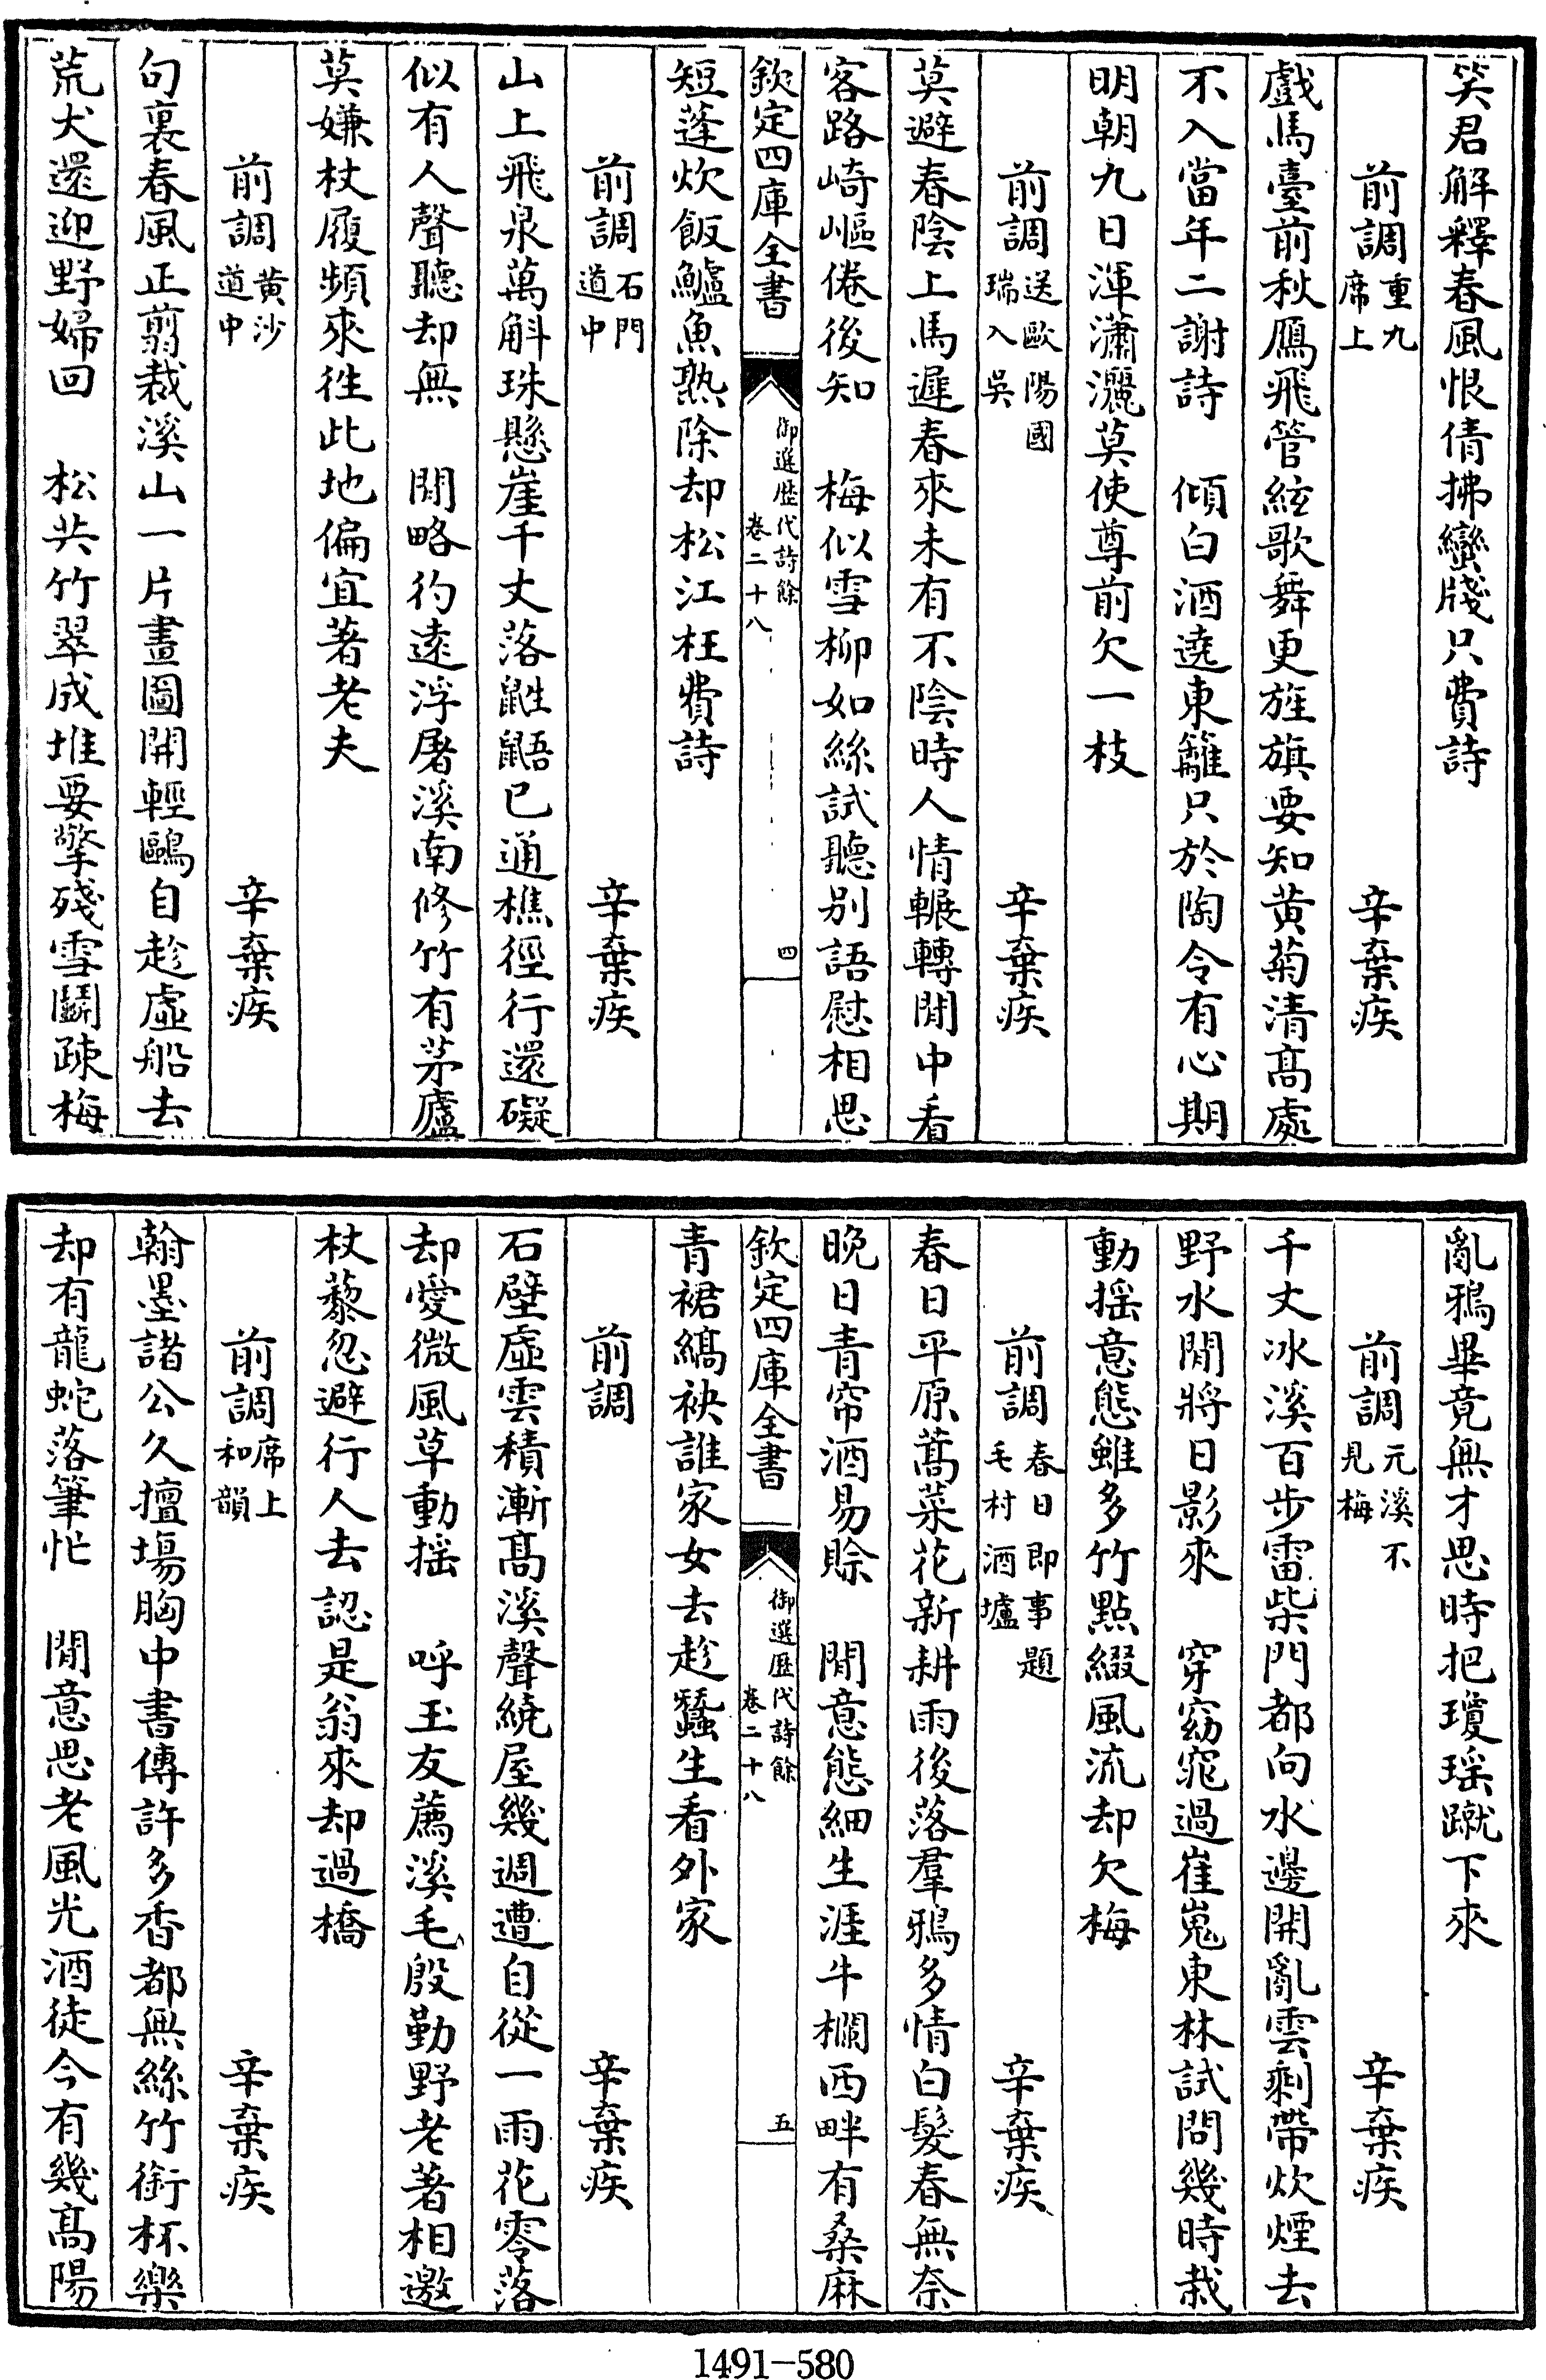 笑君解釋春風恨倩拂蠻牋只費詩
前調重九席上 辛棄疾
戲馬臺前秋鴈飛管絃歌舞更旌旗要知黃菊清高處
不入當年二謝詩 傾白酒遶東籬只於陶令有心期
明朝九日渾瀟灑莫使尊前欠一枝
前調送歐陽國瑞入吳 辛棄疾
莫避春陰上馬遲春來未有不陰時人情輾轉閒中看
客路崎嶇倦後知 梅似雪柳如絲試聽別語慰相思
欽定四庫全書 御選歷代詩餘卷二十八 四
短蓬炊飯鱸魚熟除却松江枉費詩
前調石門道中 辛棄疾
山上飛泉萬斛珠懸崖千丈落鼪鼯已通樵徑行還礙
似有人聲聽却無 閒略彴遠浮屠溪南修竹有茅廬
莫嫌杖履頻來往此地偏宜著老夫
前調黃沙道中 辛棄疾
句裏春風正剪裁溪山一片畫圖開輕鷗自趁虛船去
荒犬還迎野婦回 松共竹翠成堆要擎殘雪鬭疎梅
亂鴉畢竟無才思時把瓊瑶蹴下來
前調元溪不見梅 辛棄疾
千丈冰溪百步雷柴門都向水邊開亂雲剩帶炊煙去
野水閒將日影來 穿窈窕過崔嵬東林試問幾時栽
動搖意態雖多竹點綴風流却欠梅
前調春日即事題毛村酒壚 辛棄疾
春日平原薺菜花新耕雨後落羣鴉多情白髮春無奈
晚日青帘酒易賒 閒意態細生涯牛欄西畔有桑麻
欽定四庫全書 御選歷代詩餘卷二十八 五
青裙縞袂誰家女去趁蠶生看外家
前調 辛棄疾
石壁虛雲積漸高溪聲繞屋幾週遭自從一雨花零落
却愛微風草動搖 呼玉友薦溪毛殷勤野老著相邀
杖藜忽避行人去認是翁來却過橋
前調席上和韻 辛棄疾
翰墨諸公久擅場胸中書傳許多香都無絲竹銜杯樂
却有龍蛇落筆忙 閒意思老風光酒徒今有幾高陽
1491-580